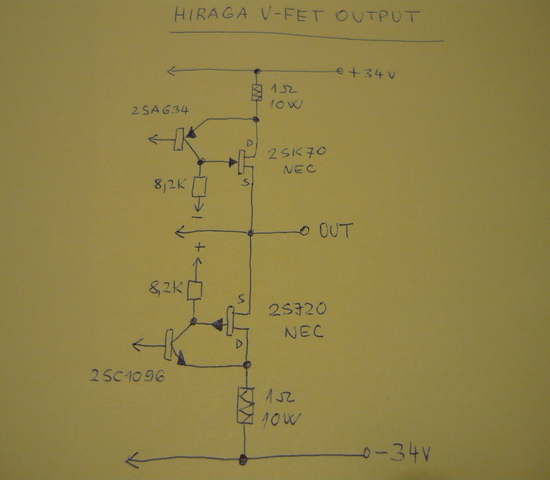 HIRAGA V-FET OUTPUT
+34V
1Ω
10W
2SA634
D
2SK70
NEC
8,2K
S
−
OUT
+
8,2K
S
2SJ20
NEC
D
2SC1096
1Ω
10W
−34V